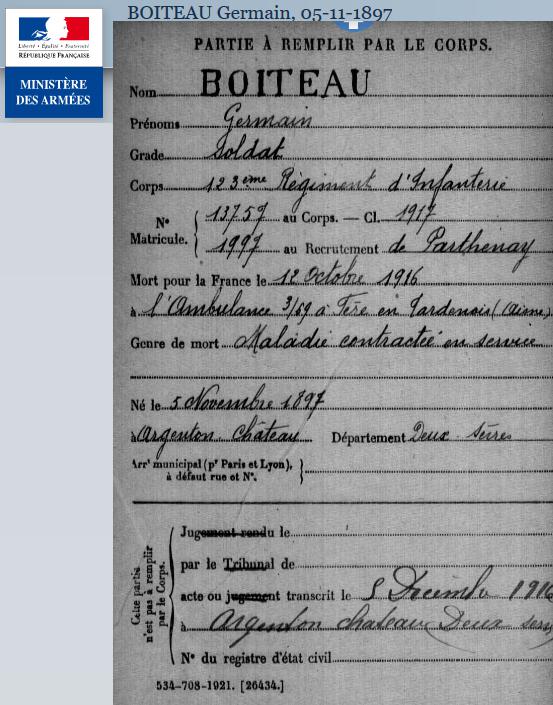 BOITEAU Germain, 05-11-1897
Liberté • Égalité • Fraternité
RÉPUBLIQUE FRANÇAISE
MINISTÈRE
DES ARMÉES
PARTIE À REMPLIR PAR LE CORPS.
Nom BOITEAU
Prénoms Germain
Grade Soldat
Corps 123ème Régiment d'Infanterie
N° Matricule. { 13757 au Corps. — Cl. 1917
1997 au Recrutement de Parthenay
Mort pour la France le 12 Octobre 1916
à l'Ambulance 3/59 à Fère en Tardenois (Aisne)
Genre de mort Maladie contractée en service
Né le 5 Novembre 1897
à Argenton Château Département Deux Sèvres
Arrt municipal (pr Paris et Lyon),
à défaut rue et N°.
Cette partie n'est pas à remplir par le Corps.
Jugement rendu le
par le Tribunal de
acte ou jugement transcrit le 5 Décembre 1916
à Argenton chateau (Deux sèvres
N° du registre d'état civil
534-708-1921. [26434.]